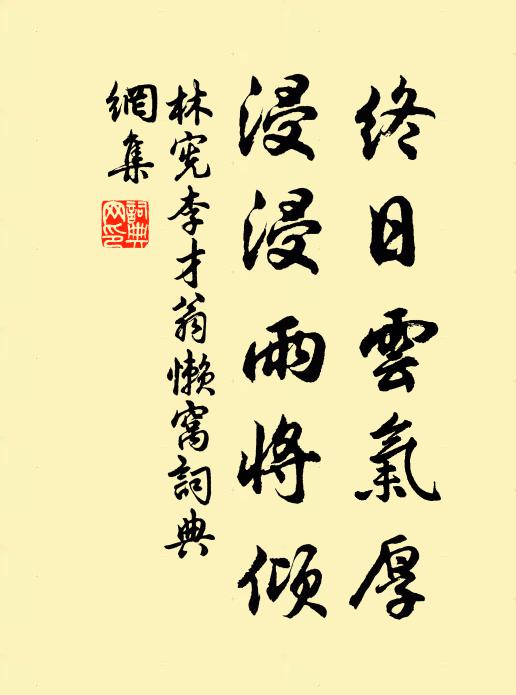 終日雲氣厚
浸浸雨將傾
林宪李才翁懒窝詞典
網集
詞典
网印